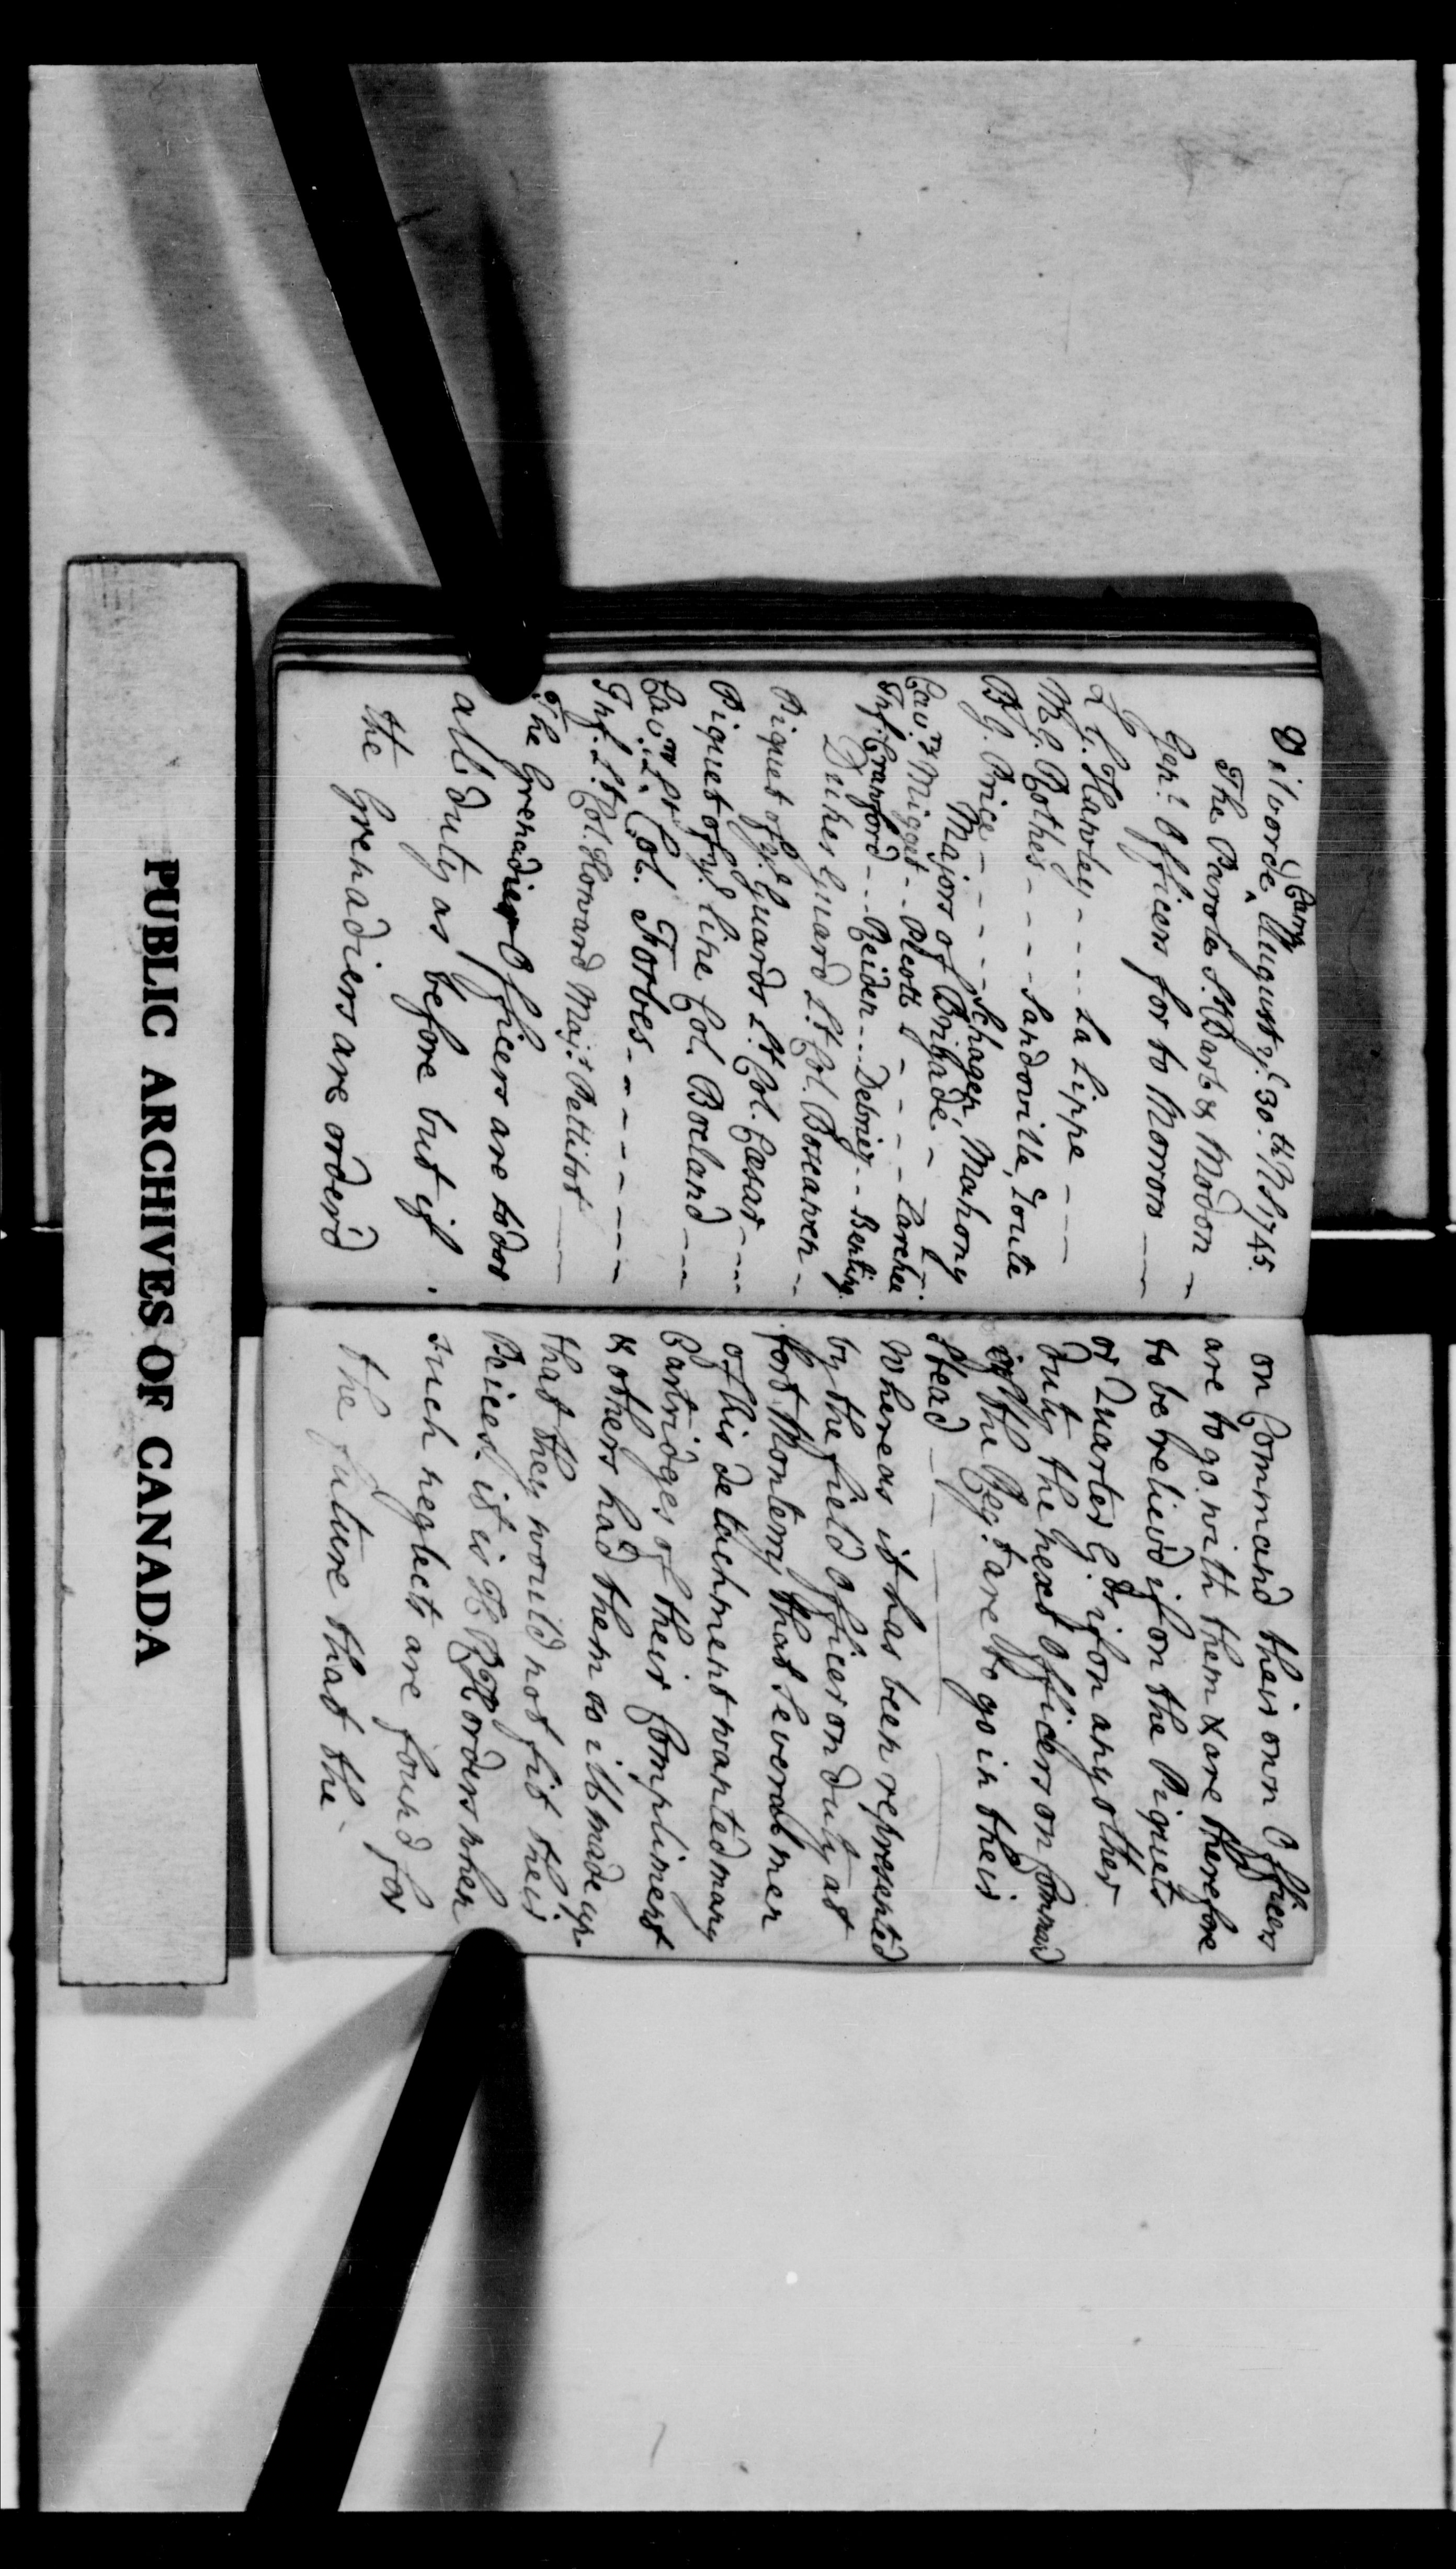 Vilvorde Camp August ye. 30.th NS 1745.
The Parole St. Bart & Modon
Genl. Officers for to Morrow
L G. Hawley - - - La Lippe - -
M G. Rothes - - - Sandoville,
B G. Price - - - - - Schagen, Mahony
Majors of Brigade -
Cavry - - - - - -
Inf. Crawford - - - Reiden - - - - Bentinj.
Dukes Guard Lt. Col Boscawen -
Piquet of ye. Guards Lt Col. Cæsar - - -
Piquet of ye. line Col. Boeland - - -
Cavry Lt. Col. Forbes - - - - - - -
Inf. Lt. Col. Howard Majr. Pettitot
The Grenadier Officers are to do
all duty as before but if
the Grenadiers are orderd
on Command their own Officers
are to go with them & are therefore
to be relievd if on the Piquets
or Quarter Gds. if on any other
duty the next Officers on Command
of the Regt. are to go in their
Stead
Whereas it has been represented
by the field Officer on duty at
fort Monterry that several men
of his detachment wanted many
Cartridges of their Compliment
& others had them so ill made up
that they would not fit their
Peices. it is H R H orders when
such neglects are found for
the future that the
PUBLIC ARCHIVES OF CANADA